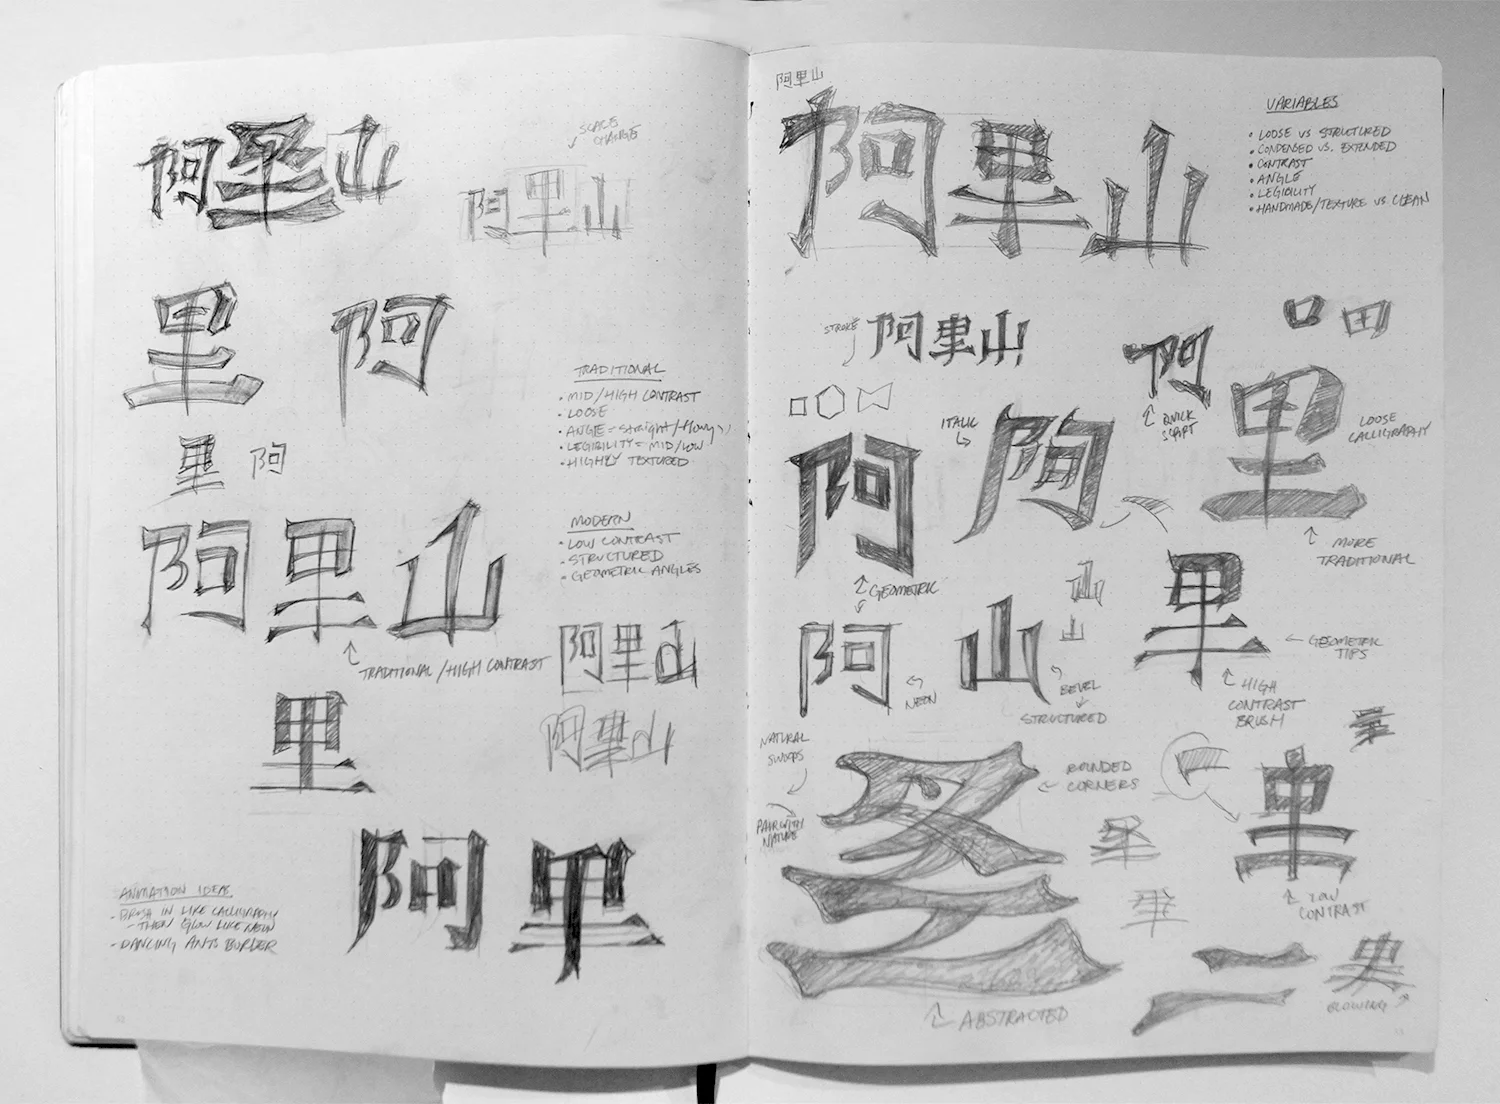 阿里山
SCALE
CHANGE
阿里山
里 阿
TRADITIONAL
• MID/HIGH CONTRAST
• LOOSE
• ANGLE = STRAIGHT/flowy
• LEGIBILITY = MID/LOW
• HIGHLY TEXTURED
里 阿
MODERN
• LOW CONTRAST
• STRUCTURED
• GEOMETRIC ANGLES
阿里山
TRADITIONAL/HIGH CONTRAST
阿里山
阿里山
里
阿里
ANIMATION IDEAS
- BRUSH IN LIKE CALLIGRAPHY
- THEN GLOW LIKE NEON
- DANCING ANTS BORDER
阿里山
阿里山
VARIABLES
• LOOSE VS STRUCTURED
• CONDENSED VS. EXTENDED
• CONTRAST
• ANGLE
• LEGIBILITY
• HANDMADE/TEXTURE VS CLEAN
STROKE
阿里山
阿
QUICK
SCRIPT
里
LOOSE
CALLIGRAPHY
MORE
TRADITIONAL
ITALIC
阿
阿
GEOMETRIC
阿
NEON
山
山
山
BEVEL
STRUCTURED
里
GEOMETRIC
TIPS
HIGH
CONTRAST
BRUSH
NATURAL
SWOOPS
PAIR WITH
NATURE
ROUNDED
CORNERS
ABSTRACTED
里
LOW
CONTRAST